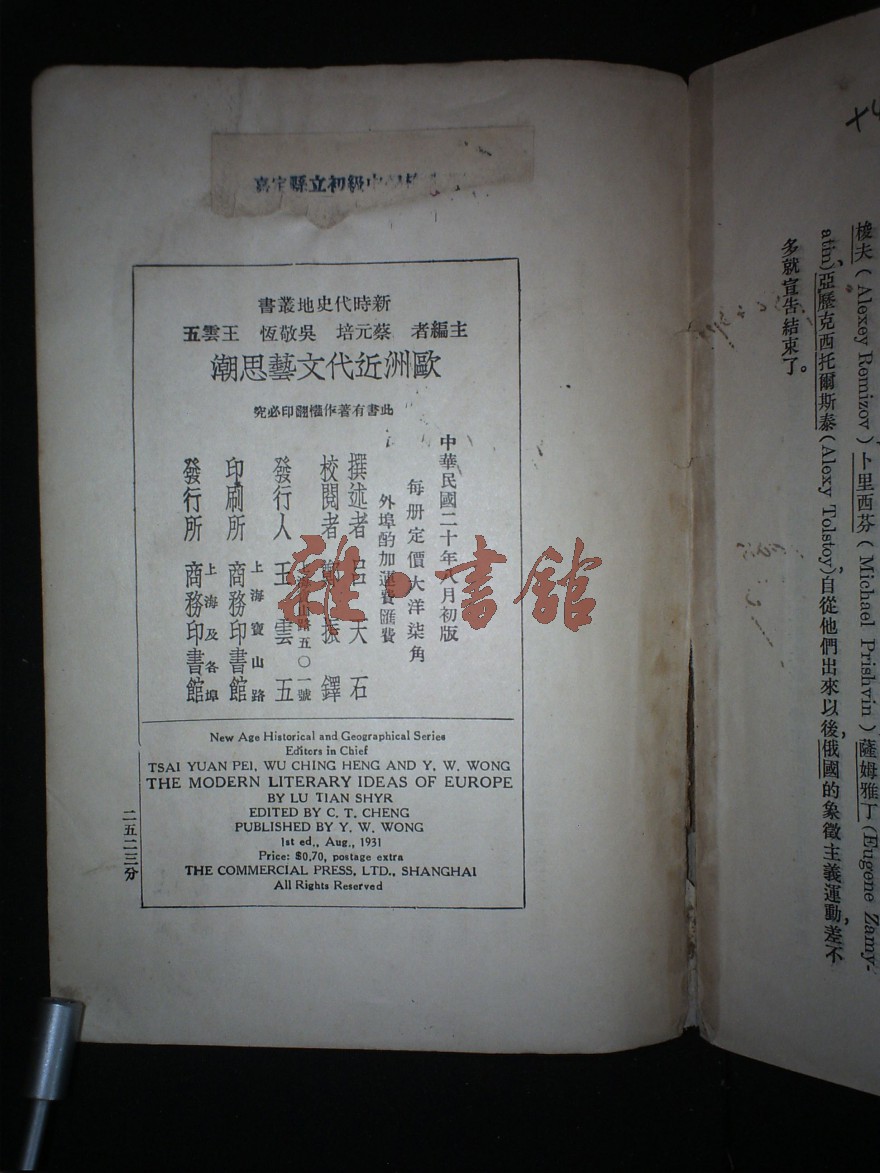 嘉定縣立初級中學校
新時代史地叢書
主編者 蔡元培 吳敬恆 王雲五
歐洲近代文藝思潮
此書有著作權翻印必究
中華民國二十年八月初版
每册定價大洋柒角
外埠酌加運費匯費
撰述者 呂天石
校閱者 鄭振鐸
發行人 王雲五
上海寶山路五〇一號
印刷所 商務印書館
上海寶山路
發行所 商務印書館
上海及各埠
New Age Historical and Geographical Series
Editors in Chief
TSAI YUAN PEI, WU CHING HENG AND Y. W. WONG
THE MODERN LITERARY IDEAS OF EUROPE
BY LU TIAN SHYR
EDITED BY C. T. CHENG
PUBLISHED BY Y. W. WONG
1st ed., Aug., 1931
Price: $0.70, postage extra
THE COMMERCIAL PRESS, LTD., SHANGHAI
All Rights Reserved
二五二三分
梭夫(Alexey Romizov)卜里西芬(Michael Prishvin)薩姆雅丁(Eugene Zamy-
atin),亞歷克西托爾斯泰(Aloxy Tolstoy),自從他們出來以後,俄國的象徵主義運動,差不
多就宣告結束了。
雜·書館